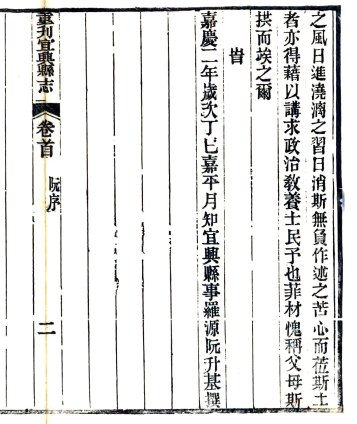 之風日進澆漓之習日消斯無負作述之苦心而蒞斯土
者亦得藉以講求政治教養士民予也菲材愧稱父母斯
拱而埃之爾
旹
嘉慶二年歲次丁巳嘉平月知宜興縣事羅源阮升基撰
重刊宜興縣志
卷首
阮序
二